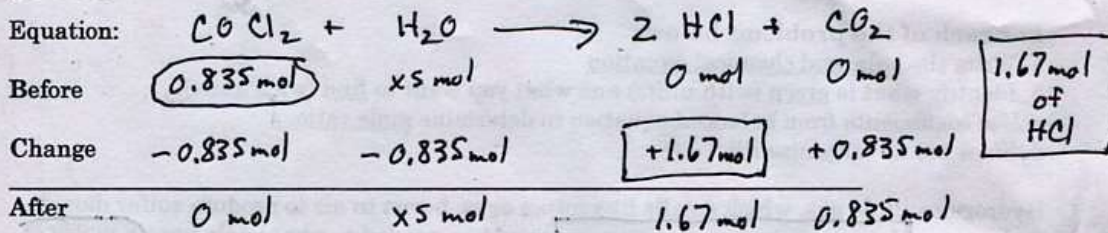 Equation: COCl₂ + H₂O → 2 HCl + CO₂
Before 0.835 mol xs mol 0 mol 0 mol
Change -0.835 mol -0.835 mol +1.67 mol +0.835 mol
After 0 mol xs mol 1.67 mol 0.835 mol
1.67 mol
of
HCl